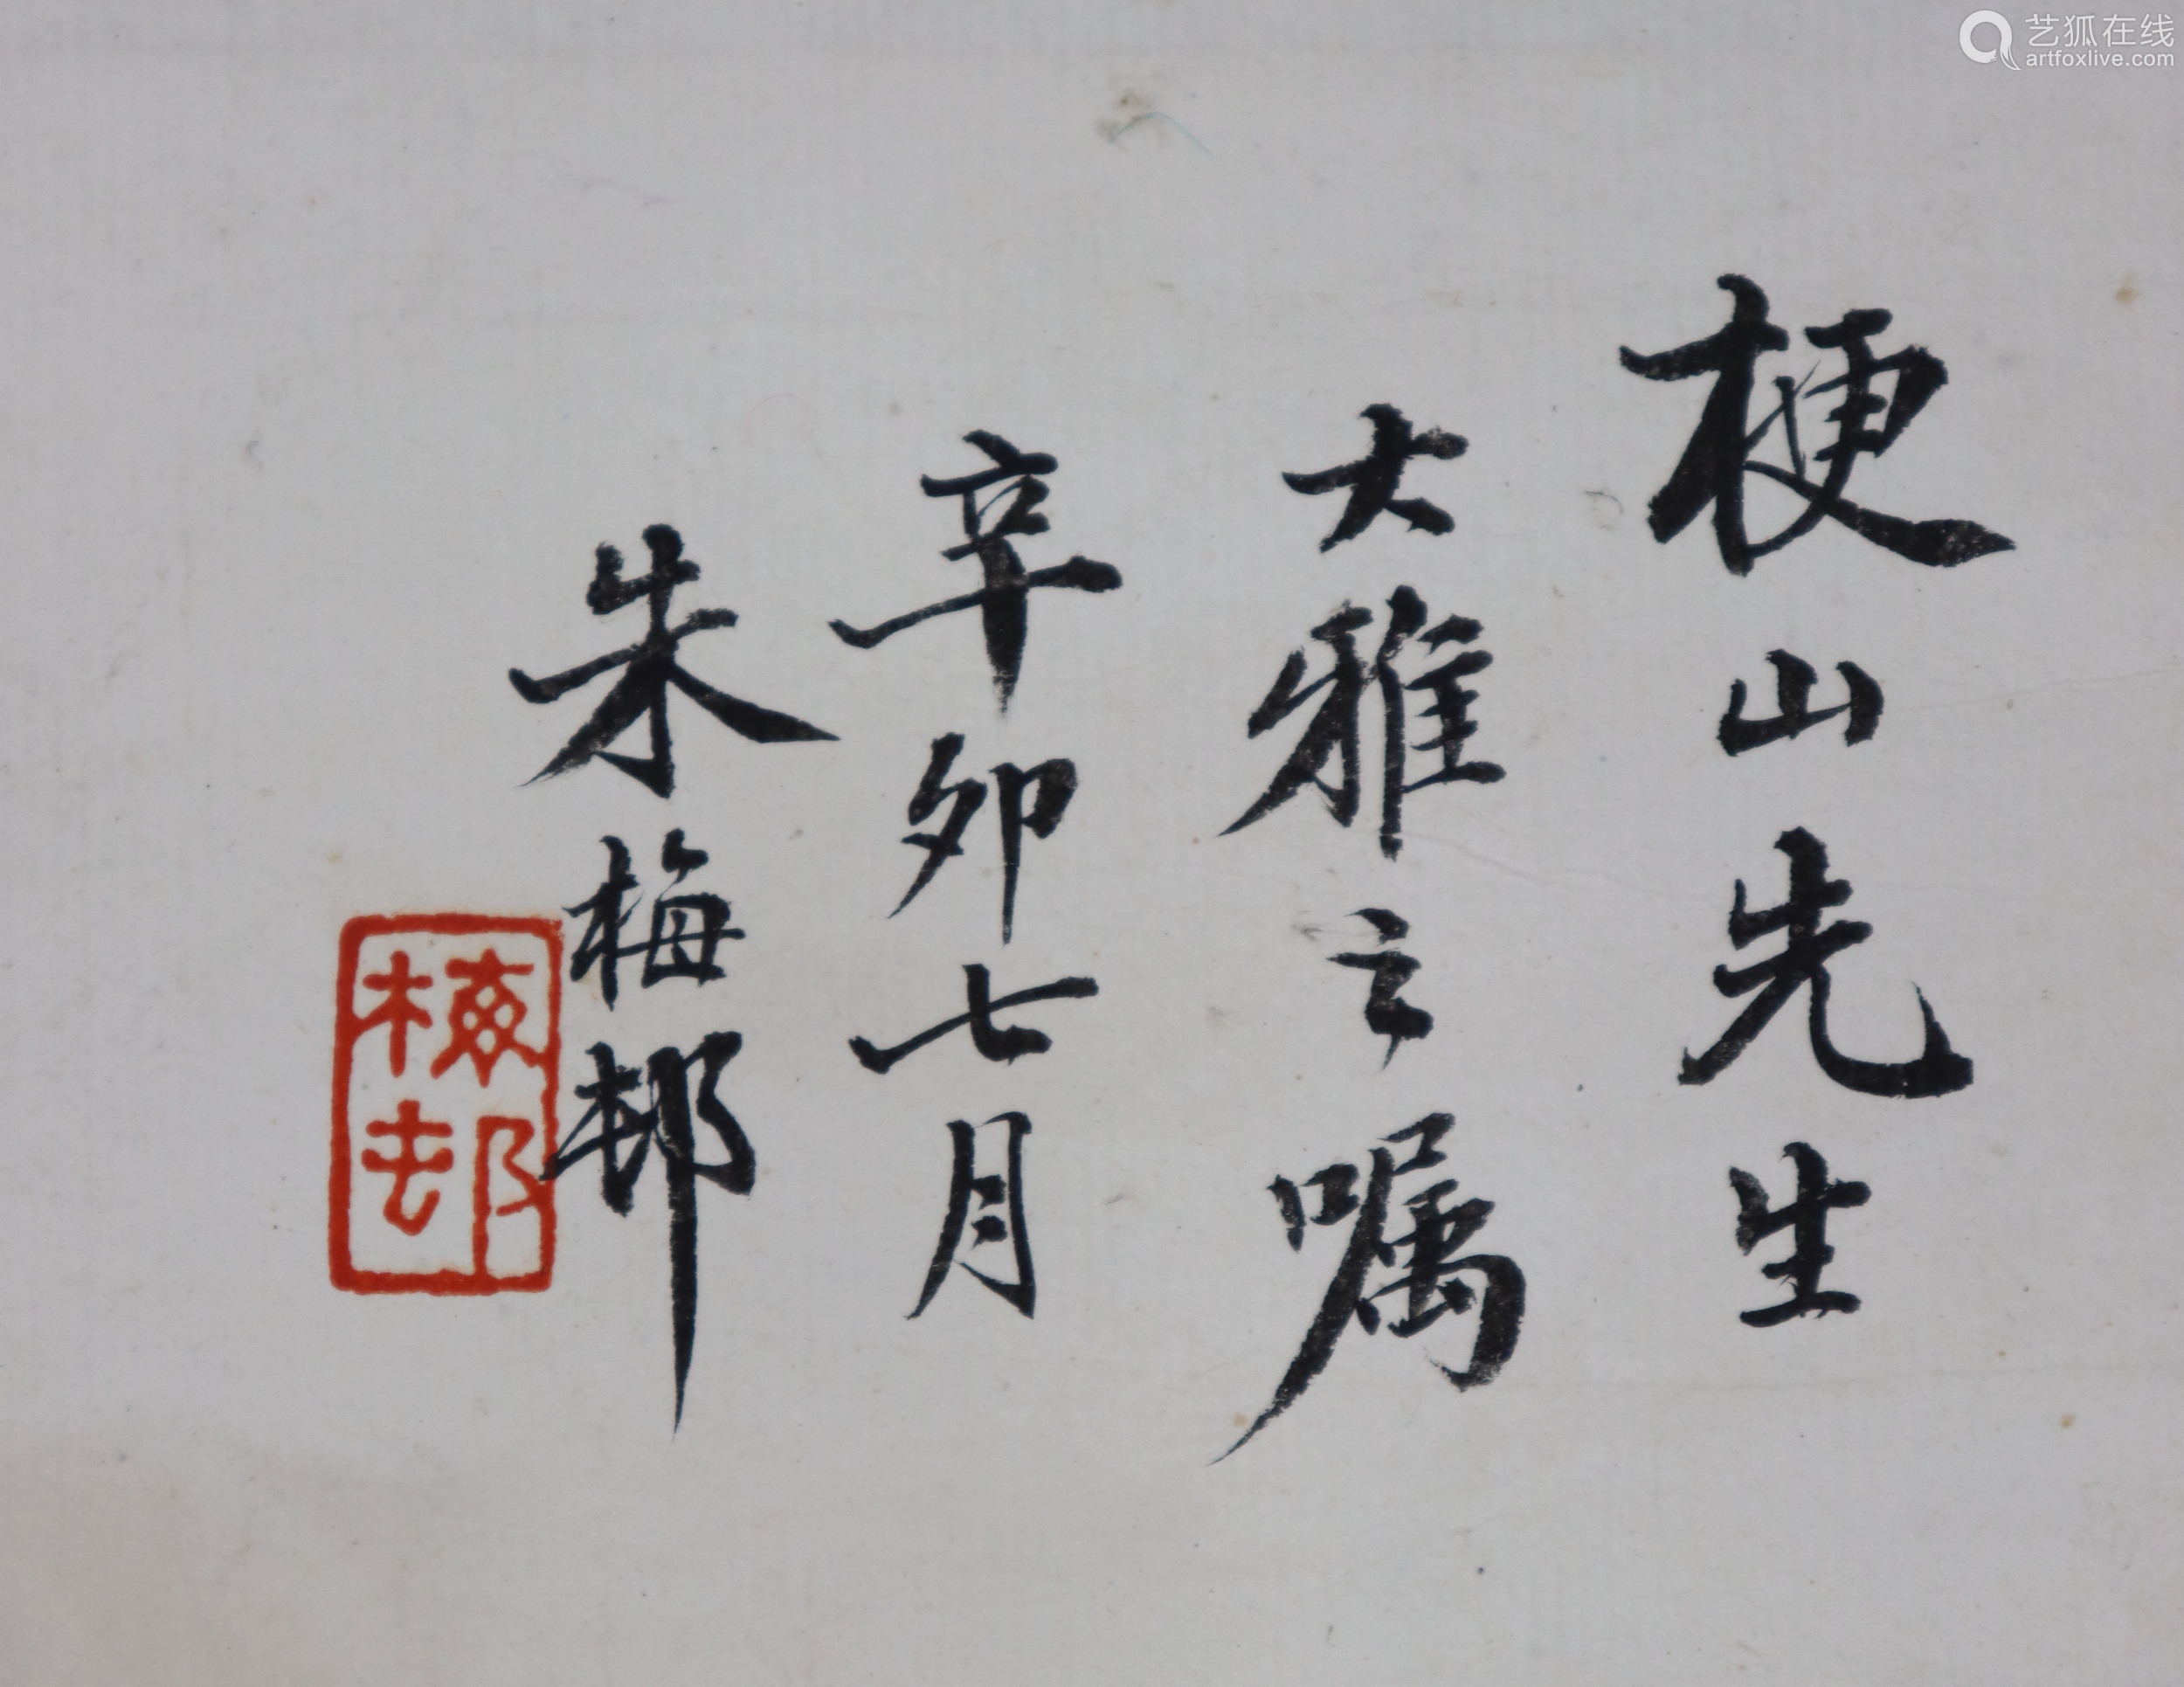 梗山先生
大雅之嘱
辛卯七月
朱梅邨
梅邨
艺狐在线
artfoxlive.com